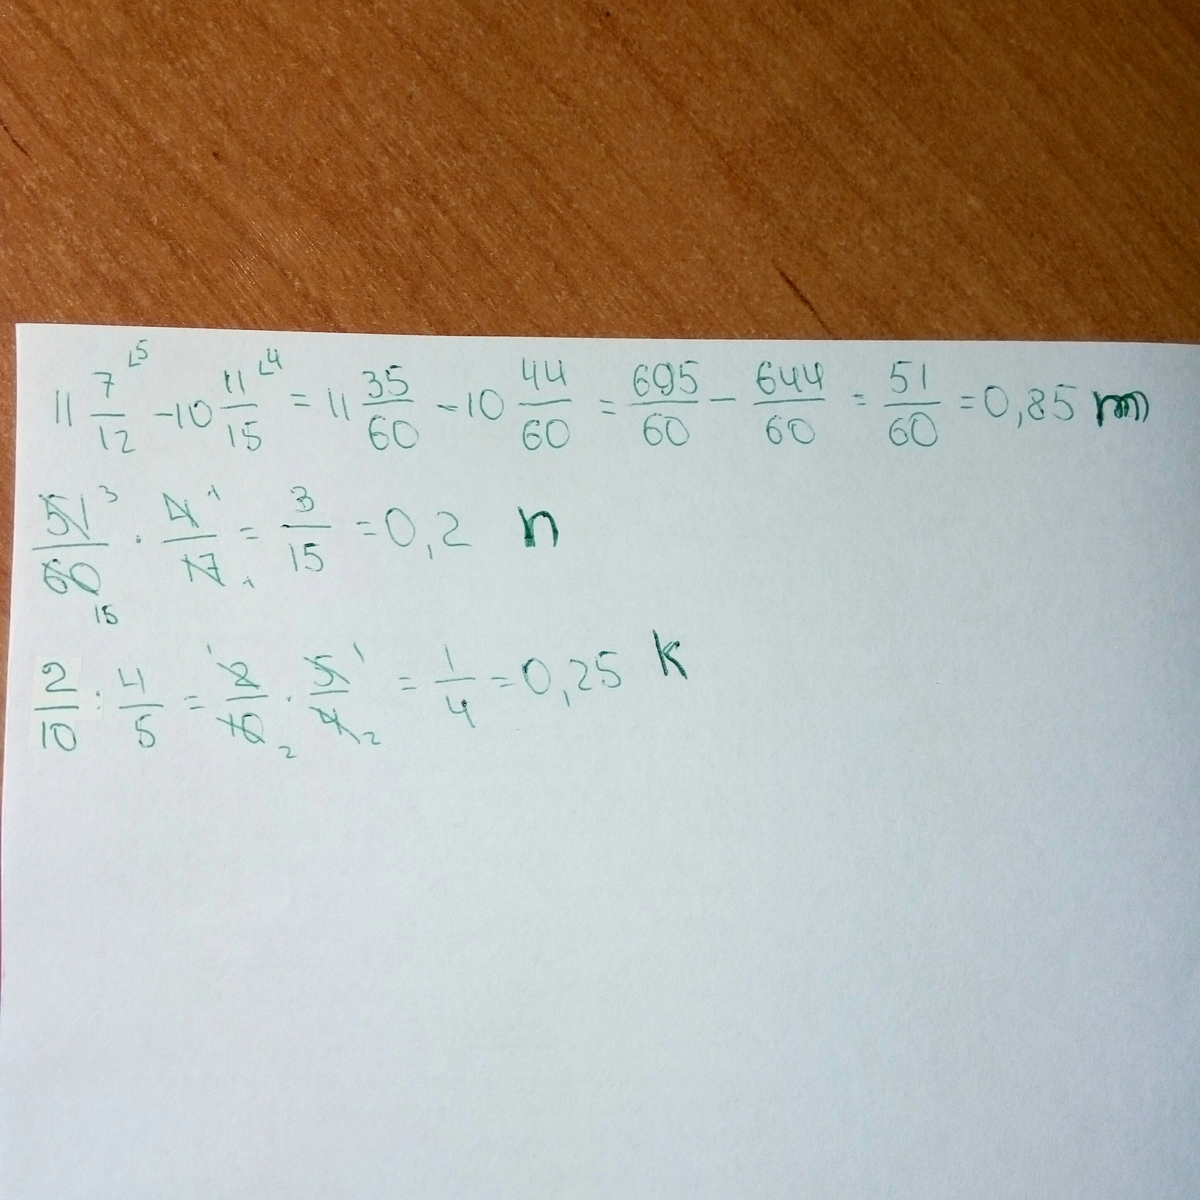 11 7/12 ⌞5 - 10 11/15 ⌞4 = 11 35/60 - 10 44/60 = 695/60 - 644/60 = 51/60 = 0,85 m
51/60 3 15 · 4/17 1 1 = 3/15 = 0,2 n
2/10 : 4/5 = 2/10 1 2 · 5/4 1 2 = 1/4 = 0,25 k